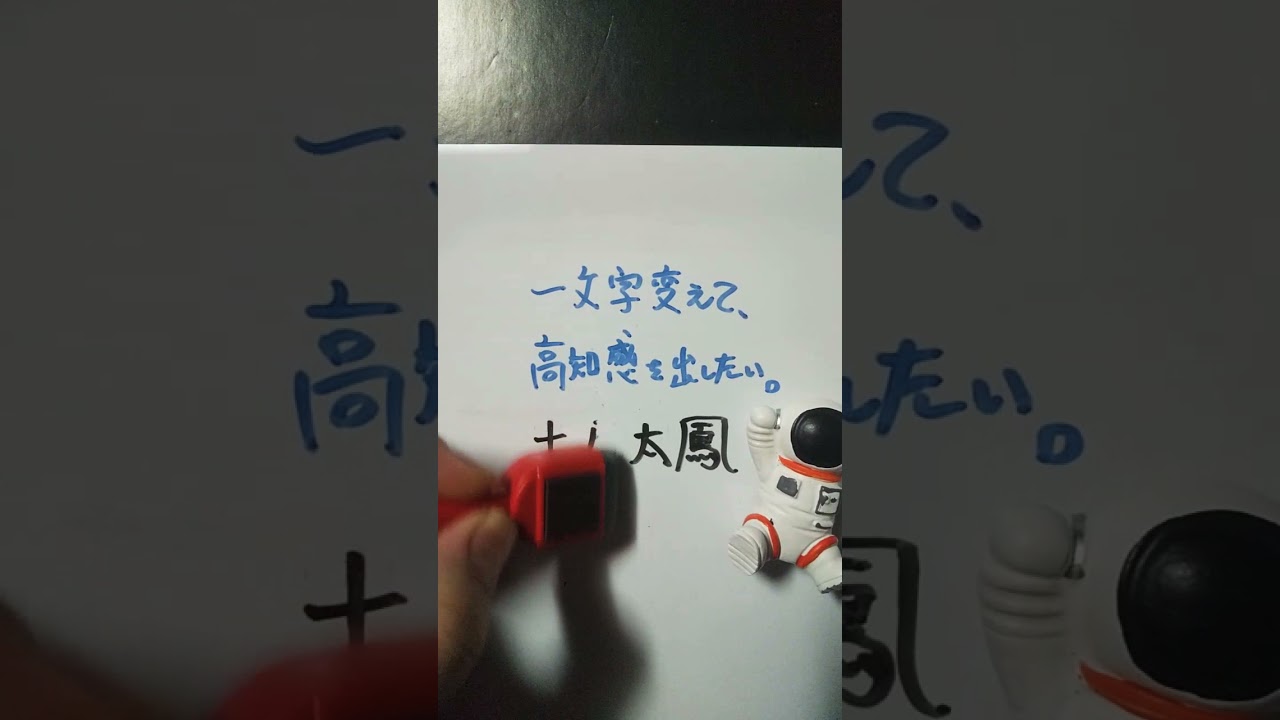 一文字変えて、
高知感を出したい。
太鳳